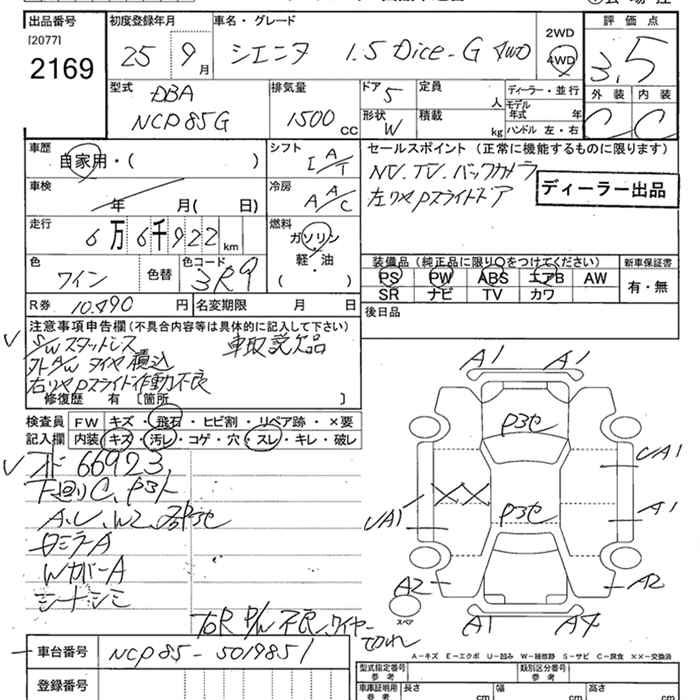 出品番号
[2077]
2169
初度登録年月
25 9月
車名・グレード
シエンタ 1.5 Dice-G 4WD
2WD
4WD
評価点
3.5
外装 内装
C C
型式
DBA
NCP85G
排気量
1500 cc
ドア 5
形状 W
定員 人
積載 kg
ディーラー・並行
モデル年式 年
ハンドル 左・右
車歴
自家用・( )
シフト
I A/T
セールスポイント (正常に機能するものに限ります)
NV.TV.バックカメラ
左リヤPスライドドア
ディーラー出品
車検
年 月( 日)
冷房
A A/C
走行
6万6千922 km
燃料
ガソリン
軽・油
( )
色
ワイン
色替
色コード
3R9
装備品(純正品に限り○をつけてください)
PS PW ABS エアB AW
SR ナビ TV カワ
新車保証書
有・無
R券 10.490 円
名変期限 月 日
後日品
注意事項申告欄(不具合内容等は具体的に記入して下さい)
S/Wスタットレス 車取説欠品
外A/W タイヤ積込
右リヤPスライド作動不良
修復歴 有 〔箇所 〕
検査員記入欄
FW キズ・飛石・ヒビ割・リペア跡・×要
内装 キズ・汚レ・コゲ・穴・スレ・キレ・破レ
オド 66923
下廻りC、Pサト
A.U.W2.
ミラーA
WカバーA
シートシミ
ToR P/W不良、ワイヤー
切れ
A1 A1
Pヨセ
UA1
Pヨセ
XX
A1
UA1
A2 A2
スペア
A1 A4
A-キズ E-エクボ U-凹み W-補修跡 S-サビ C-腐食 XX-交換済
車台番号 NCP85-5019851
登録番号
型式指定番号 参考
類別区分番号 参考
車庫証明用 参考
長さ cm
幅 cm
高さ cm